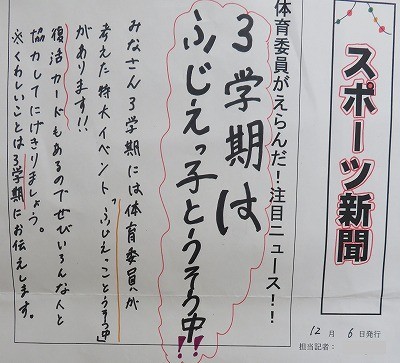 スポーツ新聞
12月6日発行
担当記者：
体育委員がえらんだ！注目ニュース！！
3学期は
ふじえっ子とうそう中!!
みなさん3学期には体育委員が
考えた特大イベント「ふじえっことうそう中」
があります!!
復活カードもあるのでぜひいろんな人と
協力してにげきりましょう。
※くわしいことは3学期にお伝えします。